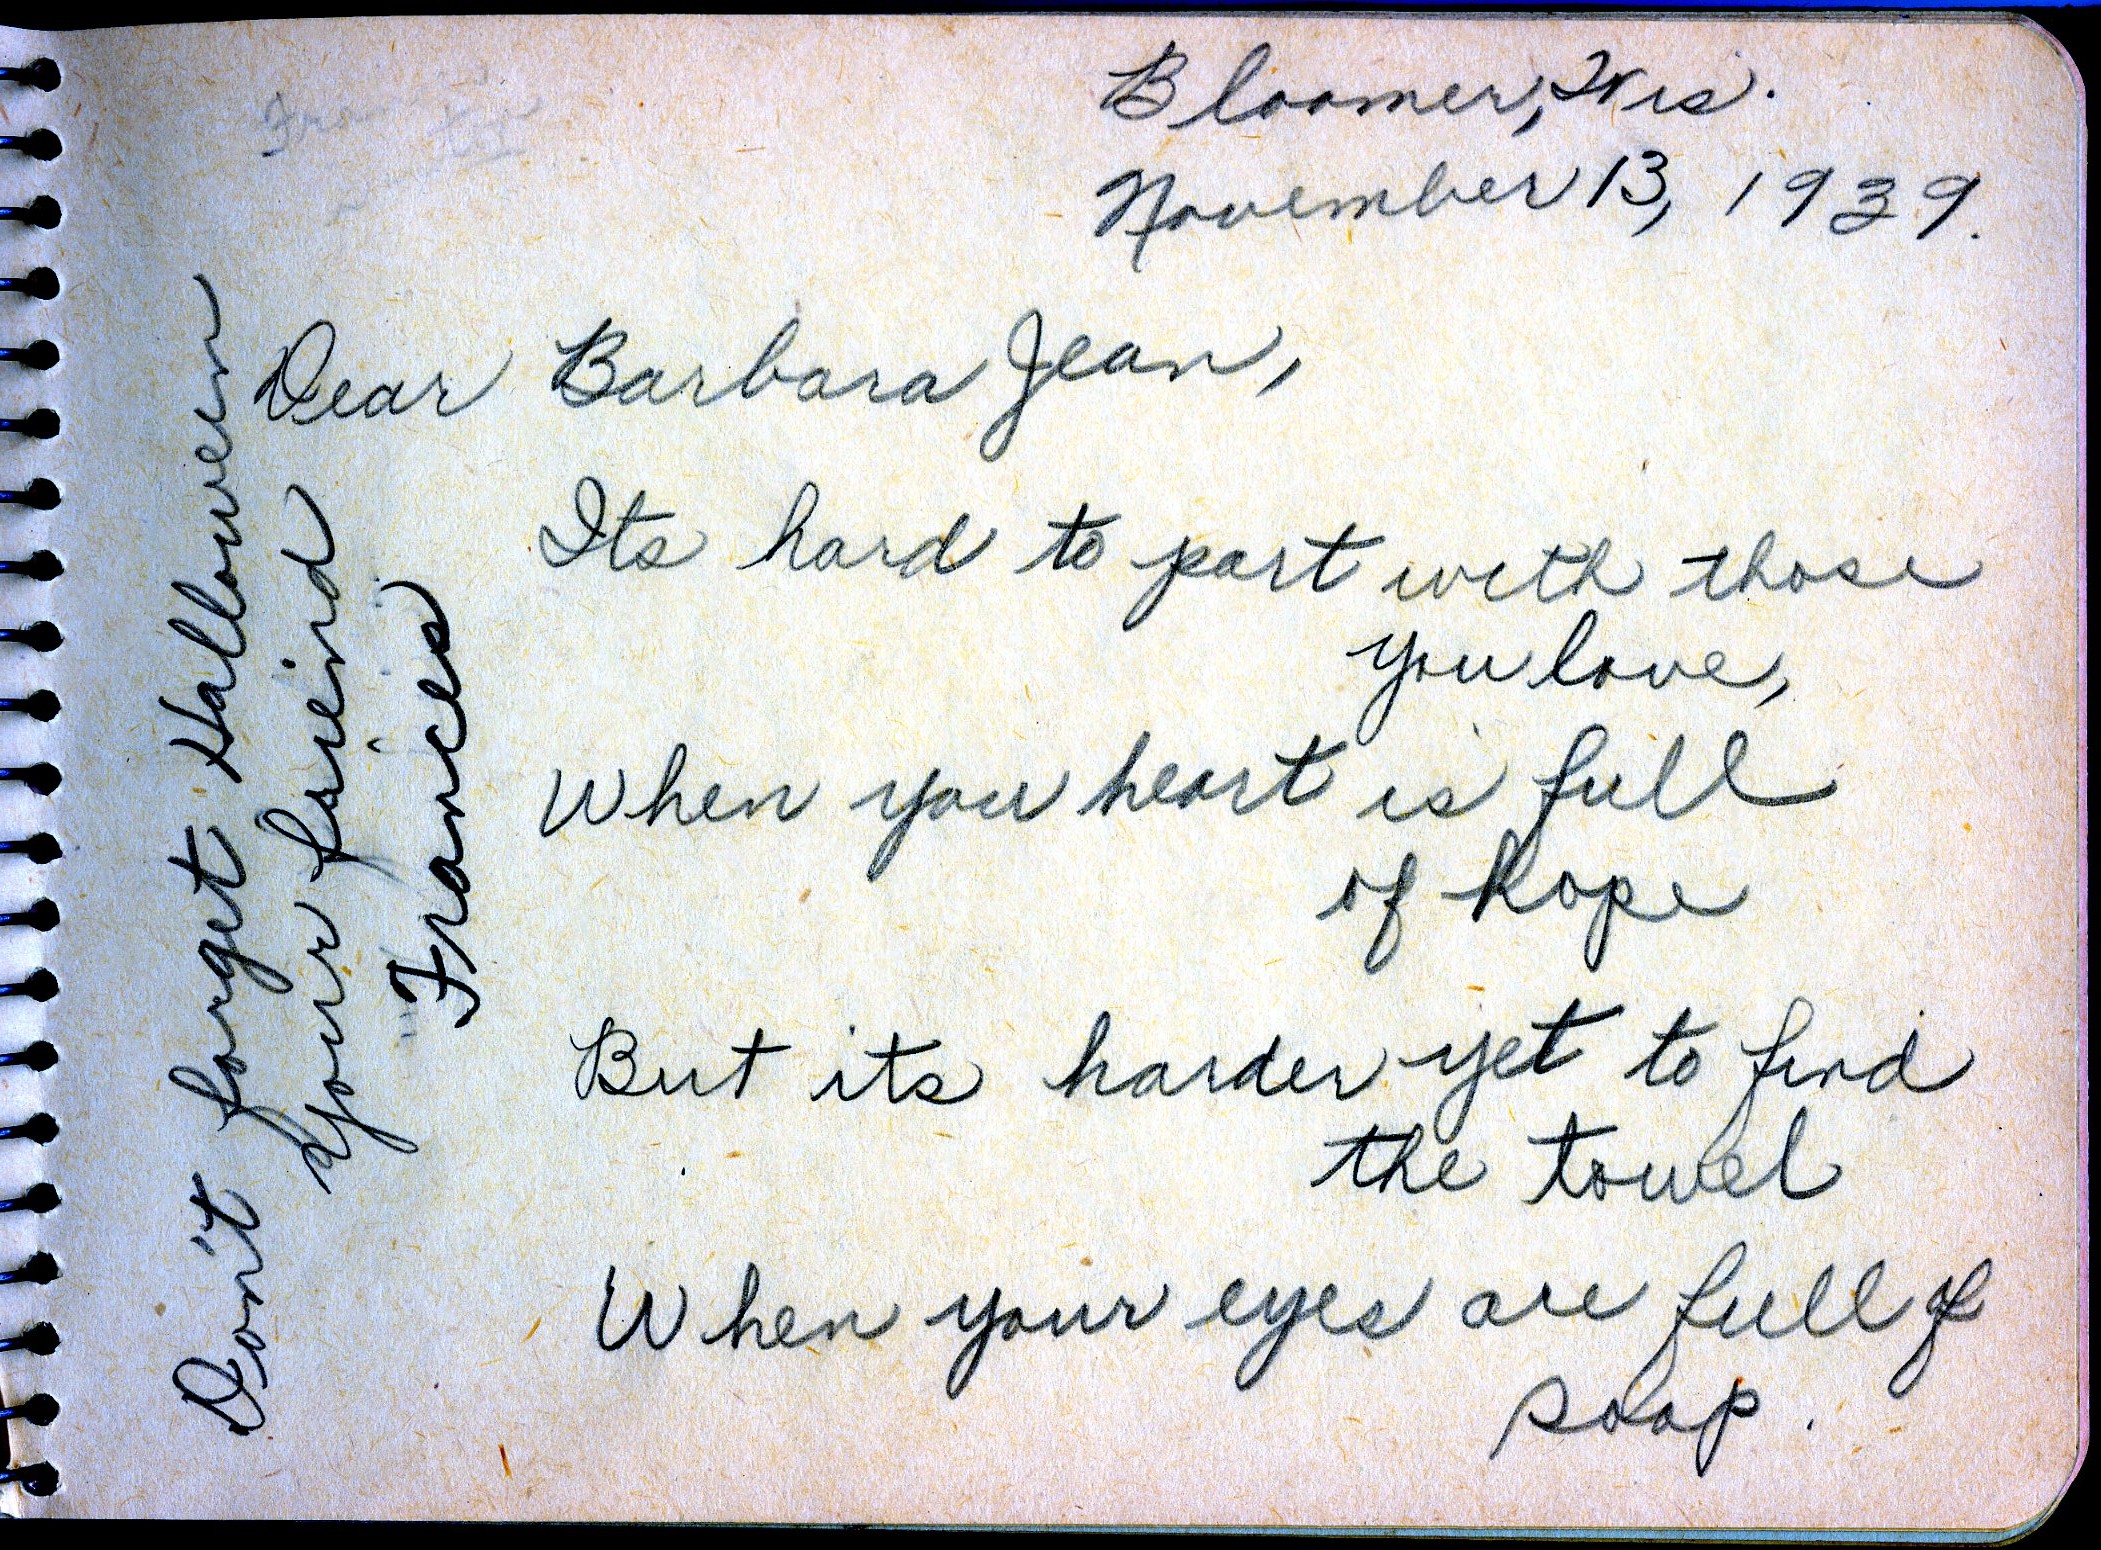 Bloomer, Wis.
November 13, 1939.
Dear Barbara Jean,
Its hard to part with those
you love,
When your heart is full
of hope
But its harder yet to find
the towel
When your eyes are full of
soap.
Don't forget Halloween
Your frieind
Frances